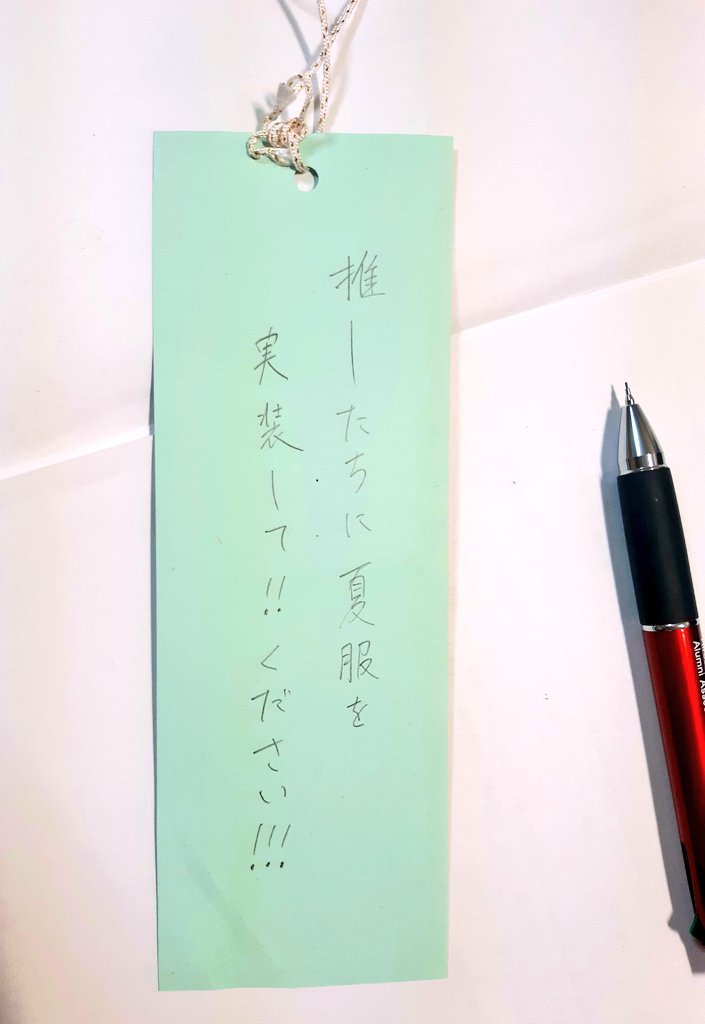 推したちに夏服を
実装して!!ください!!!
Alumni Assoc